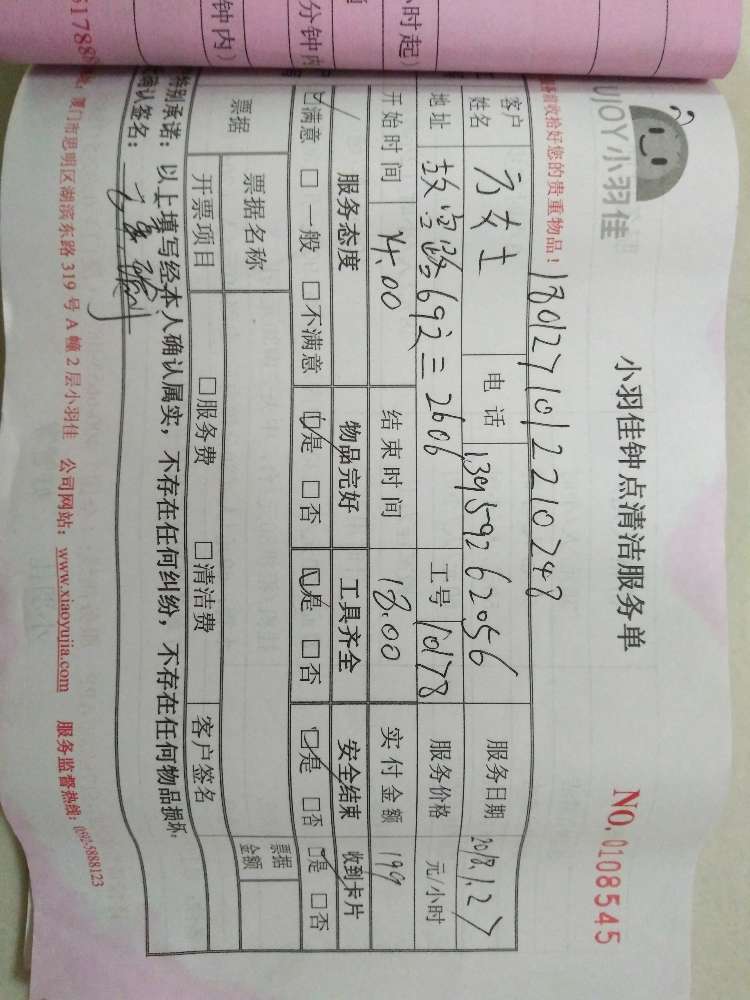 时起)
分钟内
钟内)
UJOY小羽佳
小羽佳钟点清洁服务单
NO. 0108545
前收拾好您的贵重物品!
1801271012210248
客户姓名 方女士 电话 13959262056 服务日期 2018.1.27
地址 故宫路69之三2606 工号 服务价格 元/小时
开始时间 14.00 结束时间 18.00 实付金额 199
服务态度 物品完好 工具齐全 安全结束 收到卡片
☑满意 □一般 □不满意 ☑是 □否 ☑是 □否 ☑是 □否 ☑是 □否
票据 票据名称 票据金额
开票项目 □服务费 □清洁费 客户签名
特别承诺:以上填写经本人确认属实,不存在任何纠纷,不存在任何物品损坏
确认签名:
51788 厦门市思明区湖滨东路319号A幢2层小羽佳 公司网站:www.xiaoyujia.com 服务监督热线:(0592-5888123